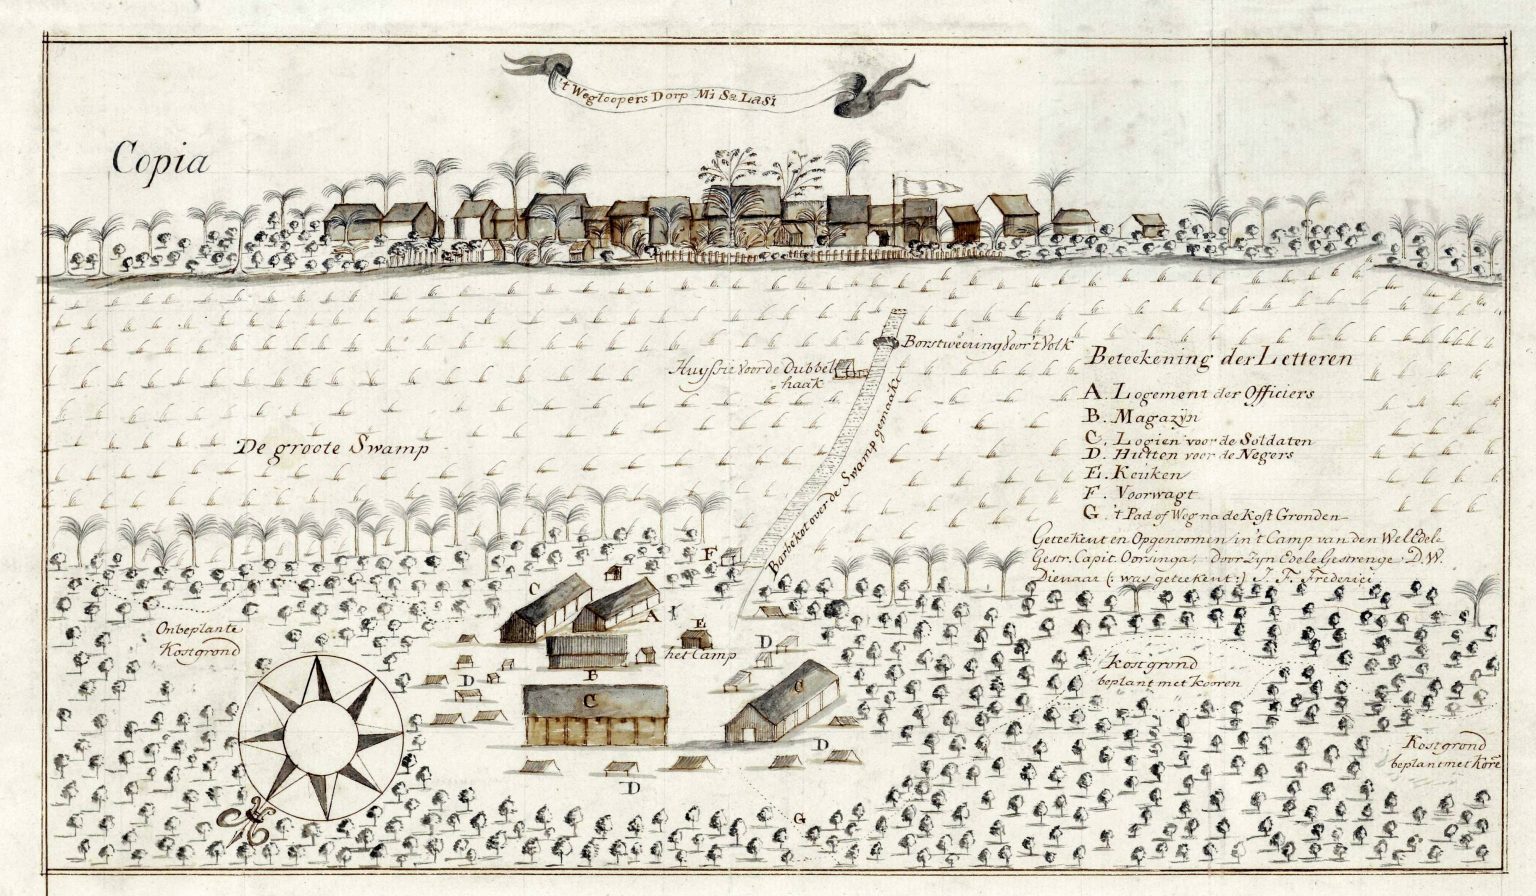 't Wegloopers Dorp Mi Sa Lasi
Copia
Borstweering voor 't Volk
Huyssie voor de Dubbel
=haak
Barbekot over de Swamp gemaakt
De groote Swamp
Beteekening der Letteren
A. Logement der Officiers
B. Magazÿn
C. Logien voor de Soldaten
D. Hutten voor de Negers
E. Keuken
F. Voorwagt
G. 't Pad of Weg na de Kost Gronden
Geteekent en Opgenoomen in 't Camp van den WelEdele
Gestr. Capit. Oorsinga, Door Zijn Edele Gestrenge D.W.
Dienaar (: was geteekent :) J. F. Frederici
F
C
A
E
het Camp
B
D
D
C
C
D
D
G
Onbeplante
Kostgrond
Kostgrond
beplant met Kooren
Kostgrond
beplant met Kore